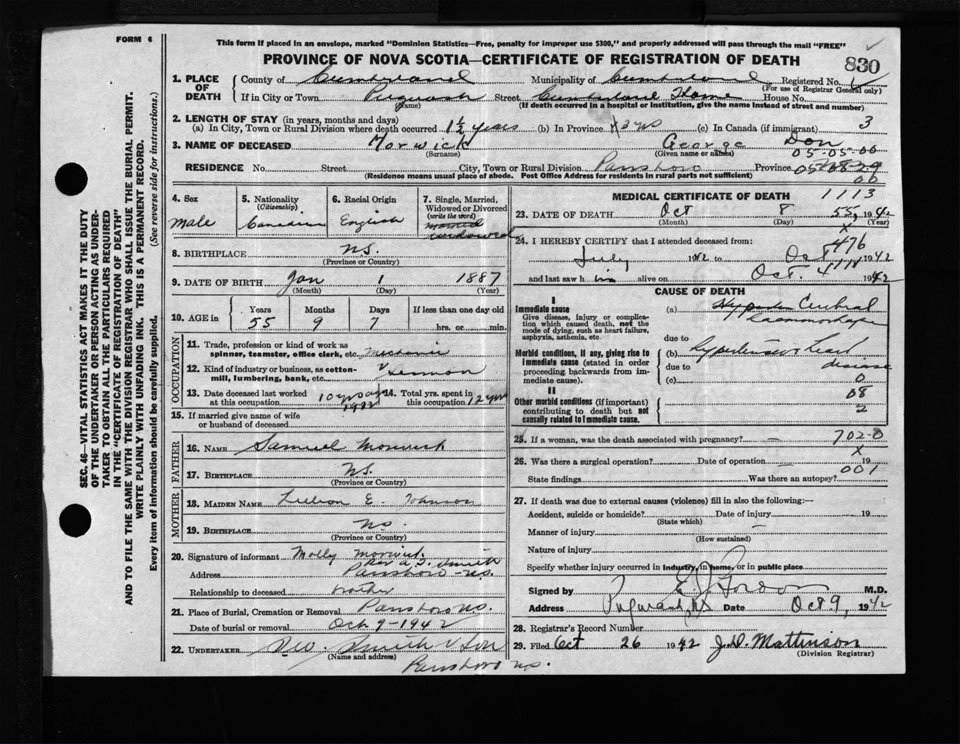 FORM 6
This form if placed in an envelope, marked "Dominion Statistics—Free, penalty for improper use $300," and properly addressed will pass through the mail "FREE"
PROVINCE OF NOVA SCOTIA—CERTIFICATE OF REGISTRATION OF DEATH
830
1. PLACE OF DEATH
County of Cumberland Municipality of Cumberland Registered No.
(For use of Registrar General only)
If in City or Town Pugwash Street Cumberland Home House No.
(Name) (If death occurred in a hospital or institution, give the name instead of street and number)
2. LENGTH OF STAY (in years, months and days)
(a) In City, Town or Rural Division where death occurred 1½ years (b) In Province (c) In Canada (if immigrant) 3
3. NAME OF DECEASED Morwick George Don
(Surname) (Given name or names) 05-05-00
RESIDENCE No. Street City, Town or Rural Division Parrsboro Province
(Residence means usual place of abode. Post Office Address for residents in rural parts not sufficient) 00
4. Sex
Male
5. Nationality
(Citizenship)
Canadian
6. Racial Origin
English
7. Single, Married, Widowed or Divorced
(write the word)
widowed
8. BIRTHPLACE N.S.
(Province or Country)
9. DATE OF BIRTH Jan 1 1887
(Month) (Day) (Year)
10. AGE in Years Months Days If less than one day old
55 9 7 hrs. or min.
OCCUPATION
11. Trade, profession or kind of work as spinner, teamster, office clerk, etc. Mechanic
12. Kind of industry or business, as cotton-mill, lumbering, bank, etc.
13. Date deceased last worked at this occupation 10 yrs ago 1932
14. Total yrs. spent in this occupation 12 yrs
15. If married give name of wife or husband of deceased
FATHER
16. NAME Samuel Morwick
17. BIRTHPLACE N.S.
(Province or Country)
MOTHER
18. MAIDEN NAME Lillian E. Johnson
19. BIRTHPLACE N.S.
(Province or Country)
20. Signature of informant Molly Morwick
Per A. T. Smith
Address Parrsboro N.S.
Relationship to deceased
21. Place of Burial, Cremation or Removal Parrsboro N.S.
Date of burial or removal Oct 9-1942
22. UNDERTAKER Smith & Son
(Name and address)
Parrsboro N.S.
MEDICAL CERTIFICATE OF DEATH 1113
23. DATE OF DEATH Oct 8 1942
(Month) (Day) (Year)
24. I HEREBY CERTIFY that I attended deceased from:
July 1942 to Oct 8 1942
and last saw him alive on Oct. 4 1942
476
CAUSE OF DEATH
I
Immediate cause
Give disease, injury or complication which caused death, not the mode of dying, such as heart failure, asphyxia, asthenia, etc.
(a) Cerebral Haemorrhage
due to
Morbid conditions, if any, giving rise to immediate cause (stated in order proceeding backwards from immediate cause).
(b) Hypertensive Heart disease
due to
(c) 0
II
Other morbid conditions (if important) contributing to death but not causally related to immediate cause.
08
2
25. If a woman, was the death associated with pregnancy? — 702-0
26. Was there a surgical operation? — Date of operation 19
State findings Was there an autopsy? 001
27. If death was due to external causes (violence) fill in also the following:—
Accident, suicide or homicide? Date of injury 19
(State which)
Manner of injury
(How sustained)
Nature of injury
Specify whether injury occurred in industry, in home, or in public place
Signed by M.D.
Address Pugwash, N.S. Date Oct 9, 1942
28. Registrar's Record Number
29. Filed Oct 26 1942 J. D. Mattinson
(Division Registrar)
SEC. 46—VITAL STATISTICS ACT MAKES IT THE DUTY
OF THE UNDERTAKER OR PERSON ACTING AS UNDER-
TAKER TO OBTAIN ALL THE PARTICULARS REQUIRED
IN THE "CERTIFICATE OF REGISTRATION OF DEATH"
AND TO FILE THE SAME WITH THE DIVISION REGISTRAR WHO SHALL ISSUE THE BURIAL PERMIT.
WRITE PLAINLY WITH UNFADING INK. THIS IS A PERMANENT RECORD.
Every item of information should be carefully supplied. (See reverse side for instructions.)